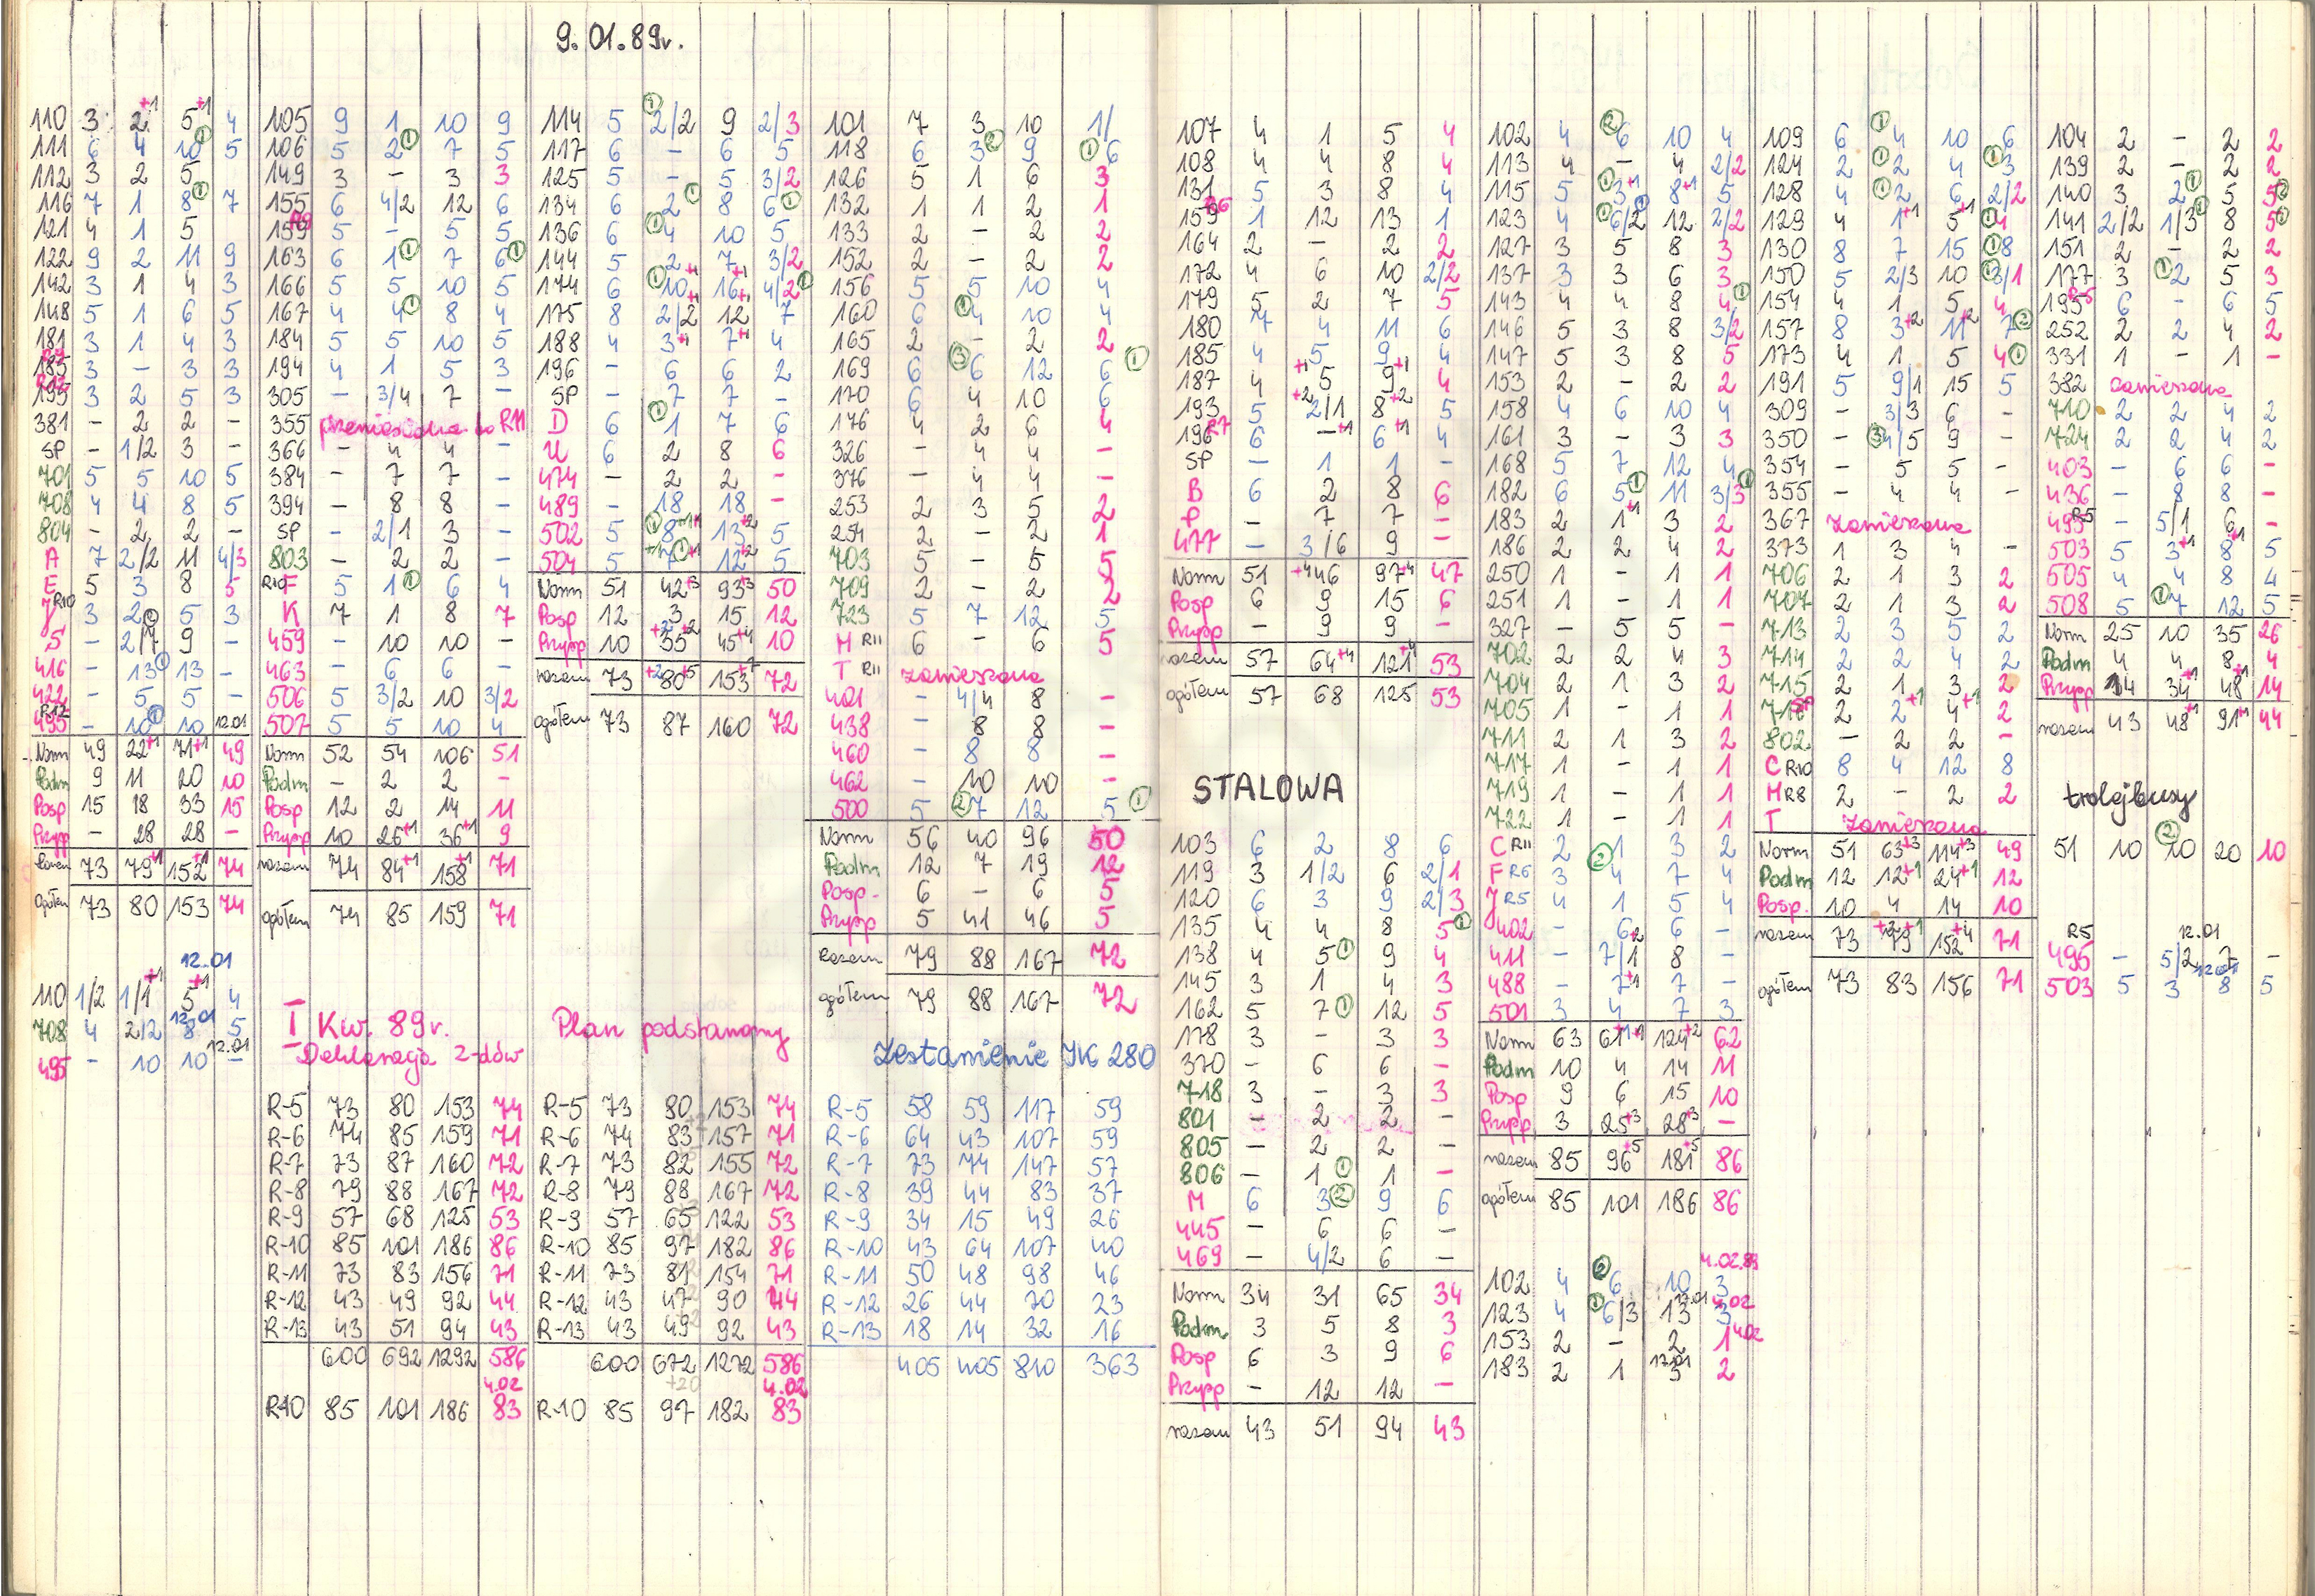 9.01.89r.
110 3 2+1 5+1 4
111 6 4 10① 5
112 3 2 5
116 7 1 8① 7
121 4 1 5
122 9 2 11 9
142 3 1 4 3
148 5 1 6 5
181 3 1 4 3
185 R9 3 - 3 3
195 R12 3 2 5 3
381 - 2 2 -
SP - 1/2 3 -
701 5 5 10 5
708 4 4 8 5
804 - 2 2 -
A 7 2/2 11 4/3
E 5 3 8 5
J R10 3 2① 5 3
S - 2/7 9 -
416 - 13① 13 -
422 - 5 5 -
495 R12 - 10① 10 12.01
Norm 49 22+1 71+1 49
Podm 9 11 20 10
Posp 15 18 33 15
Przysp - 28 28 -
razem 73 79+1 152+1 74
ogółem 73 80 153 74
12.01
110 1/2 1/1+1 5+1 4
708 4 2/2 8 5
12.01
495 - 10 10 -
12.01
105 9 1 10 9
106 5 2① 7 5
149 3 - 3 3
155 6 4/2 12 6
159 R9 5 - 5 5
163 6 1① 7 6①
166 5 5 10 5
167 4 4① 8 4
184 5 5 10 5
194 4 1 5 3
305 - 3/4 7 -
355 przeniesiona do R11
366 - 4 4 -
384 - 7 7 -
394 - 8 8 -
SP - 2/1 3 -
803 - 2 2 -
R10 F 5 1① 6 4
K 7 1 8 7
459 - 10 10 -
463 - 6 6 -
506 5 3/2 10 3/2
507 5 5 10 4
Norm 52 54 106 51
Podm - 2 2 -
Posp 12 2 14 11
Przysp 10 26+1 36+1 9
razem 74 84+1 158+1 71
ogółem 74 85 159 71
I Kw. 89r.
Deklaracja z-dów
R-5 73 80 153 74
R-6 74 85 159 71
R-7 73 87 160 72
R-8 79 88 167 72
R-9 57 68 125 53
R-10 85 101 186 86
R-11 73 83 156 71
R-12 43 49 92 44
R-13 43 51 94 43
600 692 1292 586
4.02
R10 85 101 186 83
114 5 ① 2/2 9 2/3
117 6 - 6 5
125 5 - 5 3/2
134 6 2① 8 6①
136 6 ①4 10 5
144 5 2+1 7+1 3/2
174 6 ①10+1 16+1 4/2①
175 8 2/2 12 7
188 4 3+1 7+1 4
196 - 6 6 2
SP - 7 7 -
D 6 ①1 7 6
U 6 2 8 6
474 - 2 2 -
489 - 18 18 -
502 5 ①8+1+1 13+2 5
504 5 +1 7①+1 12+2 5
Norm 51 42+3 93+3 50
Posp 12 3 15 12
Przysp 10 +2 35+2 45+4 10
razem 73 +2 80+5 153+7 72
ogółem 73 87 160 72
Plan podstawowy
R-5 73 80 153 74
R-6 74 83 157 71
R-7 73 82 155 72
R-8 79 88 167 72
R-9 57 65 122 53
R-10 85 97 182 86
R-11 73 81 154 71
R-12 43 47 90 44
R-13 43 49 92 43
600 672 1272 586
+20 4.02
R-10 85 97 182 83
101 7 3 10 1/
118 6 3② 9 ①6
126 5 1 6 3
132 1 1 2 1
133 2 - 2 2
152 2 - 2 2
156 5 5 10 4
160 6 ①4 10 4
165 2 - 2 2
169 6 ③6 12 6①
170 6 4 10 6
176 4 2 6 4
326 - 4 4 -
376 - 4 4 -
253 2 3 5 2
254 2 - 2 1
703 5 - 5 5
709 2 - 2 2
723 5 7 12 5
M R11 6 - 6 5
T R11 zawieszona
401 - 4/4 8 -
438 - 8 8 -
460 - 8 8 -
462 - 10 10 -
500 5 ②7 12 5①
Norm 56 40 96 50
Podm 12 7 19 12
Posp. 6 - 6 5
Przysp 5 41 46 5
razem 79 88 167 72
ogółem 79 88 167 72
Zestawienie JK 280
R-5 58 59 117 59
R-6 64 43 107 59
R-7 73 74 147 57
R-8 39 44 83 37
R-9 34 15 49 26
R-10 43 64 107 40
R-11 50 48 98 46
R-12 26 44 70 23
R-13 18 14 32 16
405 405 810 363
107 4 1 5 4
108 4 4 8 4
131 5 3 8 4
159 R6 1 12 13 1
164 2 - 2 2
172 4 6 10 2/2
179 5 2 7 5
180 7 4 11 6
185 4 5 9 4
187 4 +1 5 9+1 4
193 5 +2 2/1 8+2 5
196 R7 6 -+1 6+1 4
SP - 1 1 -
B 6 2 8 6
P - 7 7 -
477 - 3/6 9 -
Norm 51 +4 46 97+4 47
Posp 6 9 15 6
Przysp - 9 9 -
razem 57 64+4 121+4 53
ogółem 57 68 125 53
STALOWA
103 6 2 8 6
119 3 1/2 6 2/1
120 6 3 9 2/3
135 4 4 8 5①
138 4 5① 9 4
145 3 1 4 3
162 5 7① 12 5
178 3 - 3 3
370 - 6 6 -
718 3 - 3 3
801 - 2 2 -
805 - 2 2 -
806 - 1① 1 -
M 6 3② 9 6
445 - 6 6 -
469 - 4/2 6 -
Norm 34 31 65 34
Podm 3 5 8 3
Posp 6 3 9 6
Przysp - 12 12 -
razem 43 51 94 43
102 4 ②6 10 4
113 4 - 4 2/2
115 5 ①3+1 8+1 5
123 4 ①6/2① 12 2/2
127 3 5 8 3
137 3 3 6 3
143 4 4 8 4①
146 5 3 8 3/2
147 5 3 8 5
153 2 - 2 2
158 4 6 10 4
161 3 - 3 3
168 5 7 12 4
182 6 5① 11 3/3①
183 2 1+1 3 2
186 2 2 4 2
250 1 - 1 1
251 1 - 1 1
327 - 5 5 -
702 2 2 4 3
704 2 1 3 2
705 1 - 1 1
711 2 1 3 2
717 1 - 1 1
719 1 - 1 1
722 1 - 1 1
C R11 2 ②1 3 2
F R6 3 4 7 4
J R5 4 1 5 4
402 - 6+2 6 -
411 - 7/1 8 -
488 - 7+1 7 -
501 3 4 7 3
Norm 63 61+1+1 124+2 62
Podm 10 4 14 11
Posp 9 6 15 10
Przysp 3 25+3 28+3 -
razem 85 96+5 181+5 86
ogółem 85 101 186 86
4.02.89
102 4 ②6 10 3
123 4 ①6/3 13 3
153 2 - 2 1 4.02
183 2 1 3 2
109 6 ①4 10 6
124 2 ①2 4 ①3
128 4 ①2 6 2/2
129 4 1+1 5+1 ①4
130 8 7 15 ①8
150 5 2/3 10 ①3/1
154 4 1 5 4
157 8 3+2 11+2 7②
173 4 1 5 4①
191 5 9/1 15 5
309 - 3/3 6 -
350 - ③4/5 9 -
354 - 5 5 -
355 - 4 4 -
367 zawieszona
373 1 3 4 -
706 2 1 3 2
707 2 1 3 2
713 2 3 5 2
714 2 2 4 2
715 2 1 3 2
716 2 2+1 4+1 2
802 - 2 2 -
C R10 8 4 12 8
M R8 2 - 2 2
T zawieszona
Norm 51 63+3 114+3 49
Podm 12 12+1 24+1 12
Posp. 10 4 14 10
razem 73 79+3+1 152+4 71
ogółem 73 83 156 71
104 2 - 2 2
139 2 - 2 2
140 3 2① 5 5②
141 2/2 1/3① 8 5①
151 2 - 2 2
177 3 ①2 5 3
195 R5 6 - 6 5
252 2 2 4 2
331 1 - 1 -
382 zawieszona
710 2 2 4 2
724 2 2 4 2
403 - 6 6 -
436 - 8 8 -
495 R5 - 5/1 6 -
503 5 3+1 8+1 5
505 4 4 8 4
508 5 ①7 12 5
Norm 25 10 35 26
Podm 4 4 8 4
Przysp 14 34+1 48+1 14
razem 43 48+1 91+1 44
trolejbusy
51 10 ②10 20 10
R5 12.01
495 - 5/2 7 -
503 5 3 8 5